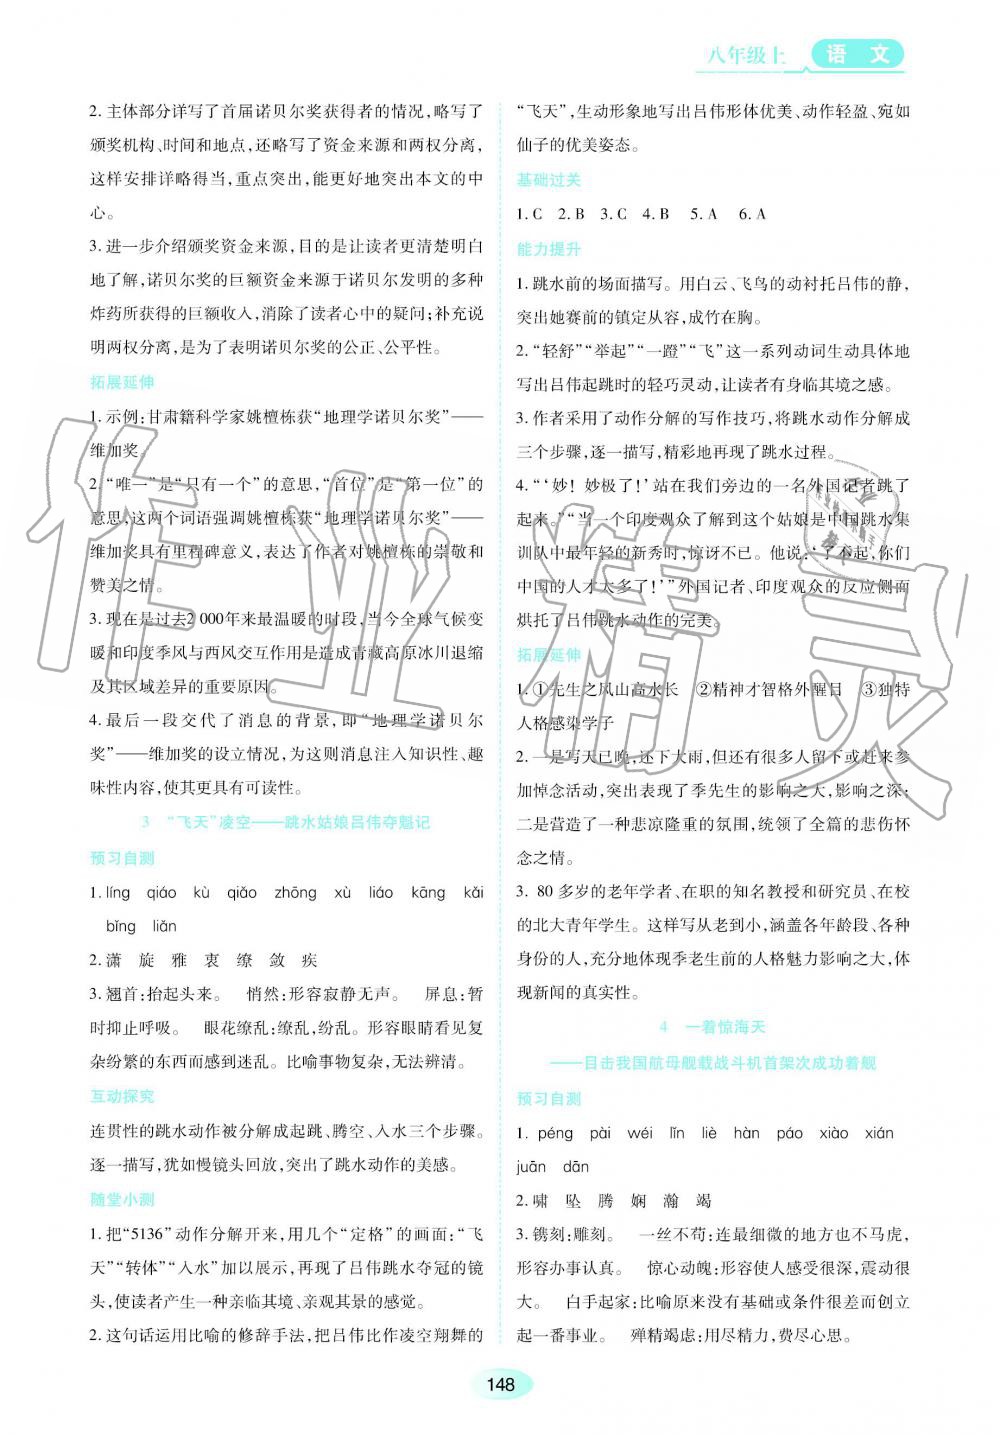 八年级上 语文
2. 主体部分详写了首届诺贝尔奖获得者的情况,略写了
颁奖机构、时间和地点,还略写了资金来源和两权分离,
这样安排详略得当,重点突出,能更好地突出本文的中
心。
3. 进一步介绍颁奖资金来源,目的是让读者更清楚明白
地了解,诺贝尔奖的巨额资金来源于诺贝尔发明的多种
炸药所获得的巨额收入,消除了读者心中的疑问;补充说
明两权分离,是为了表明诺贝尔奖的公正、公平性。
拓展延伸
1. 示例:甘肃籍科学家姚檀栋获“地理学诺贝尔奖”——
维加奖。
2. “唯一”是“只有一个”的意思,“首位”是“第一位”的
意思,这两个词语强调姚檀栋获“地理学诺贝尔奖”——
维加奖具有里程碑意义,表达了作者对姚檀栋的崇敬和
赞美之情。
3. 现在是过去2 000年来最温暖的时段,当今全球气候变
暖和印度季风与西风交互作用是造成青藏高原冰川退缩
及其区域差异的重要原因。
4. 最后一段交代了消息的背景,即“地理学诺贝尔
奖”——维加奖的设立情况,为这则消息注入知识性、趣
味性内容,使其更具有可读性。
3 “飞天”凌空——跳水姑娘吕伟夺魁记
预习自测
1. líng qiáo kù qiǎo zhōng xù liáo kāng kǎi
bǐng liǎn
2. 潇 旋 雅 衷 缭 敛 疾
3. 翘首:抬起头来。 悄然:形容寂静无声。 屏息:暂
时抑止呼吸。 眼花缭乱:缭乱,纷乱。形容眼睛看见复
杂纷繁的东西而感到迷乱。比喻事物复杂,无法辨清。
互动探究
连贯性的跳水动作被分解成起跳、腾空、入水三个步骤。
逐一描写,犹如慢镜头回放,突出了跳水动作的美感。
随堂小测
1. 把“5136”动作分解开来,用几个“定格”的画面:“飞
天”“转体”“入水”加以展示,再现了吕伟跳水夺冠的镜
头,使读者产生一种亲临其境、亲观其景的感觉。
2. 这句话运用比喻的修辞手法,把吕伟比作凌空翔舞的
“飞天”,生动形象地写出吕伟形体优美、动作轻盈、宛如
仙子的优美姿态。
基础过关
1. C 2. B 3. C 4. B 5. A 6. A
能力提升
1. 跳水前的场面描写。用白云、飞鸟的动衬托吕伟的静,
突出她赛前的镇定从容,成竹在胸。
2. “轻舒”“举起”“一蹬”“飞”这一系列动词生动具体地
写出吕伟起跳时的轻巧灵动,让读者有身临其境之感。
3. 作者采用了动作分解的写作技巧,将跳水动作分解成
三个步骤,逐一描写,精彩地再现了跳水过程。
4. “‘妙! 妙极了!’站在我们旁边的一名外国记者跳了
起来。”“当一个印度观众了解到这个姑娘是中国跳水集
训队中最年轻的新秀时,惊讶不已。他说:‘了不起,你们
中国的人才太多了!’”外国记者、印度观众的反应侧面
烘托了吕伟跳水动作的完美。
拓展延伸
1. ①先生之风山高水长 ②精神才智格外醒目 ③独特
人格感染学子
2. 一是写天已晚,还下大雨,但还有很多人留下或赶来参
加悼念活动,突出表现了季先生的影响之大,影响之深;
二是营造了一种悲凉隆重的氛围,统领了全篇的悲伤怀
念之情。
3. 80 多岁的老年学者、在职的知名教授和研究员、在校
的北大青年学生。这样写从老到小,涵盖各年龄段、各种
身份的人,充分地体现季老生前的人格魅力影响之大,体
现新闻的真实性。
4 一着惊海天
——目击我国航母舰载战斗机首架次成功着舰
预习自测
1. péng pài wéi lǐn liè hàn páo xiào xián
juān dān
2. 啸 坠 腾 娴 瀚 竭
3. 镌刻:雕刻。 一丝不苟:连最细微的地方也不马虎,
形容办事认真。 惊心动魄:形容使人感受很深,震动很
大。 白手起家:比喻原来没有基础或条件很差而创立
起一番事业。 殚精竭虑:用尽精力,费尽心思。
148
作业精灵